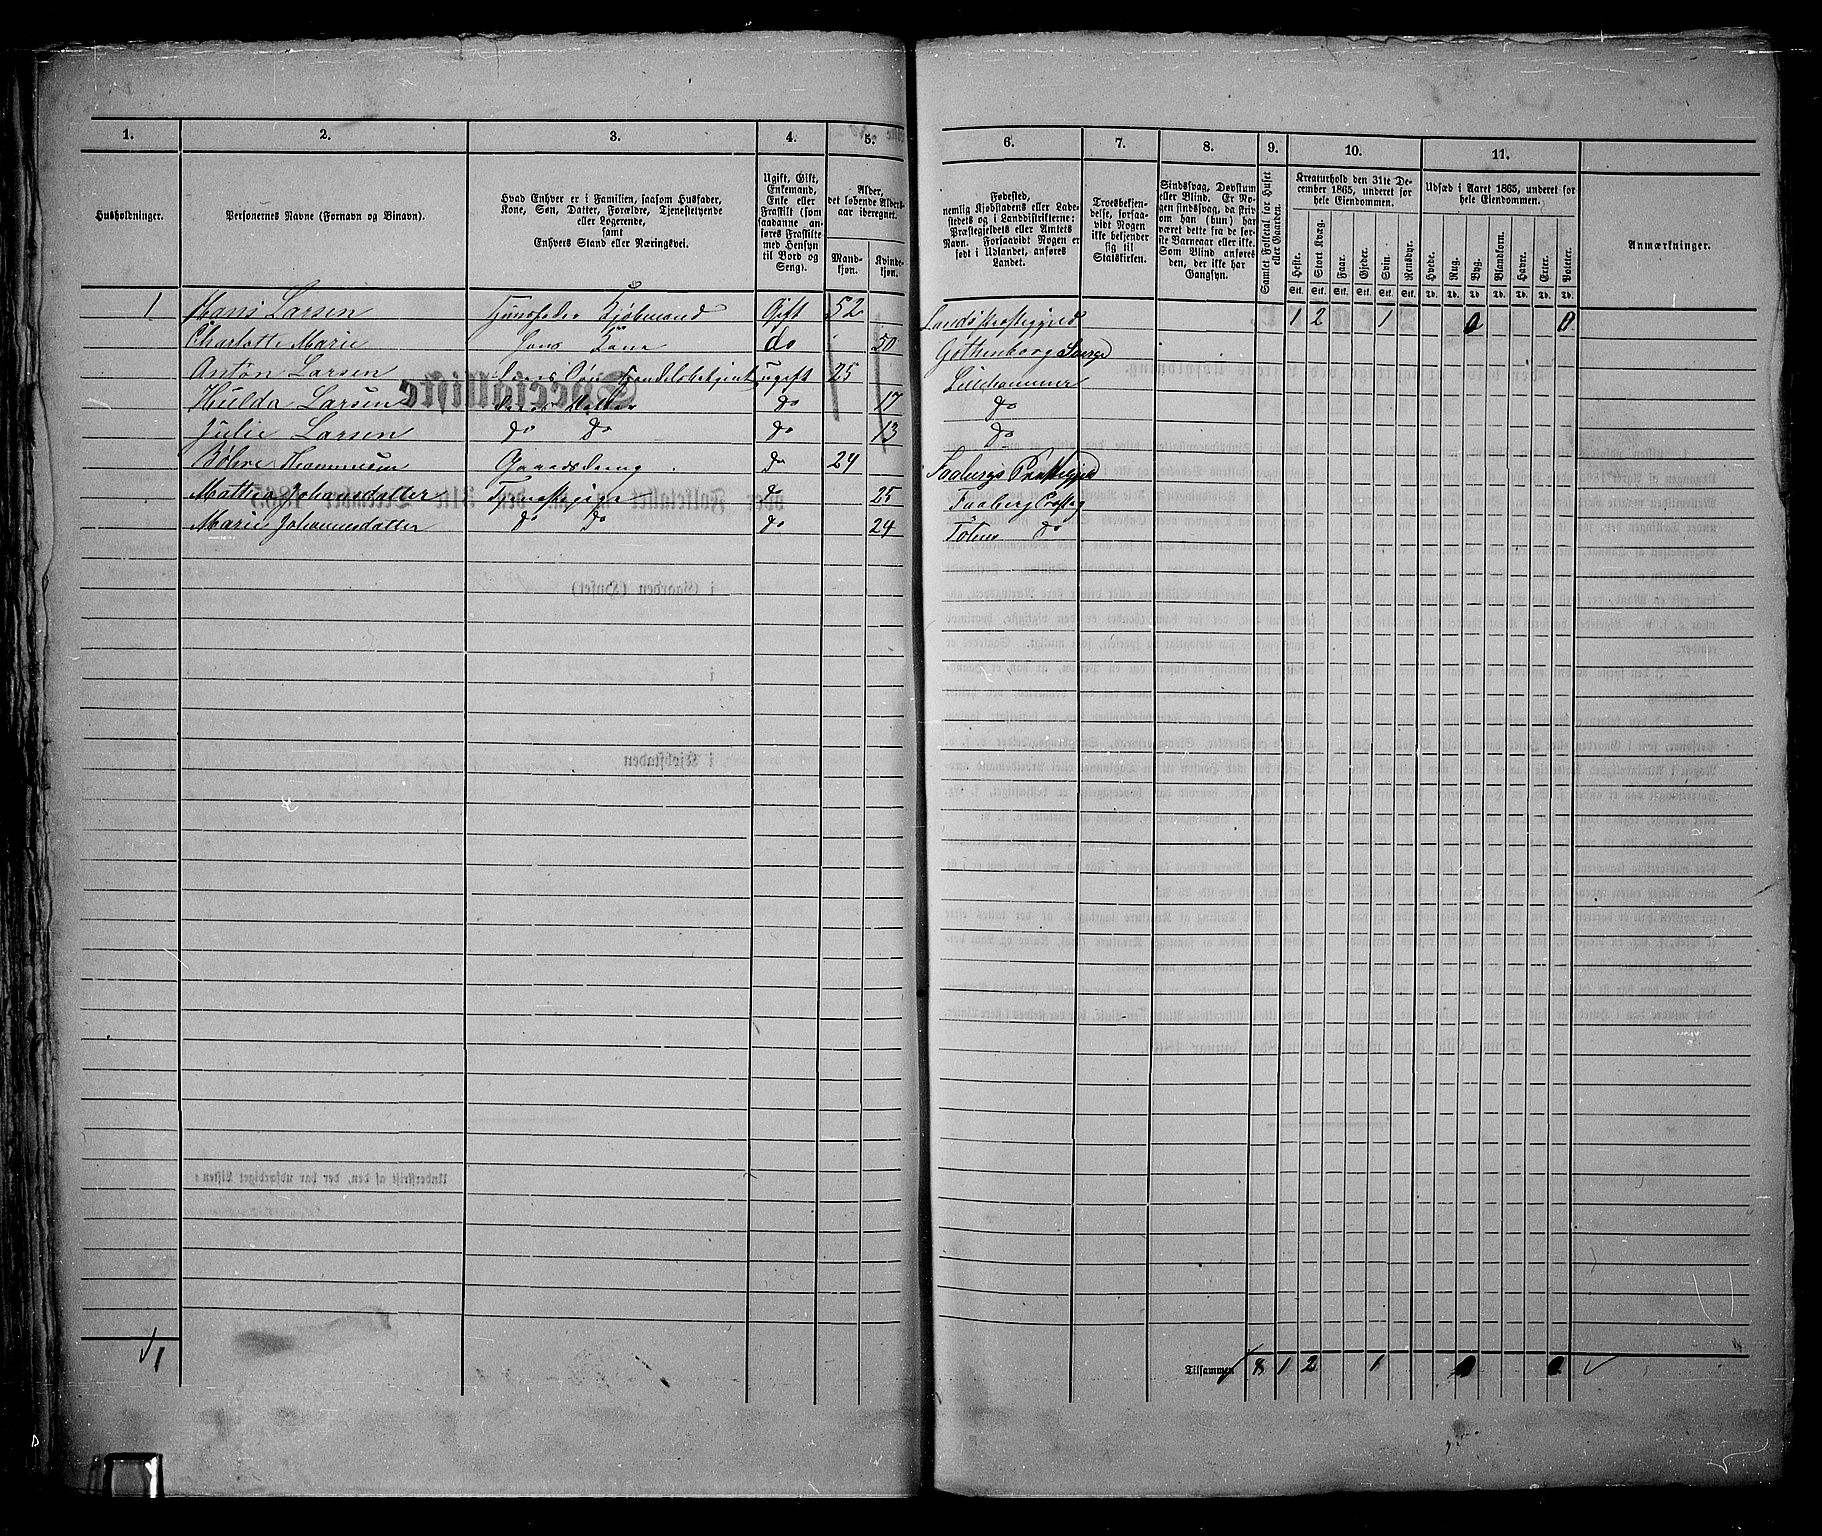 1. 2. 3. 4. 5. 6. 7. 8. 9. 10. 11.
Husholdninger.
Personernes Navne (Fornavn og Binavn).
Hvad Enhver er i Familien, saasom Husfader,
Kone, Søn, Datter, Forældre, Tjenestetyende
eller Logerende,
samt
Enhvers Stand eller Næringsvei.
Ugift, Gift,
Enkemand,
Enke eller
Fraskilt (som
saadanne an-
føres Fraskilte
med Hensyn
til Bord og
Seng).
Alder,
det løbende Alders-
aar iberegnet.
Mand-
kjøn.
Kvinde-
kjøn.
Fødested,
nemlig Kjøbstadens eller Lade-
stedets og i Landdistrikterne:
Præstegjeldets eller Amtets
Navn. Forsaavidt Nogen er
født i Udlandet, anføres
Landet.
Troesbekjen-
delse, forsaa-
vidt Nogen
ikke bekjender
sig til
Statskirken.
Sindssvag, Døvstum
eller Blind. Er No-
gen sindssvag, da skriv
om han (hun) har
været dette fra de før-
ste Barneaar eller ikke.
Som Blind anføres
den, der ikke har
Gangsyn.
Samlet Folketal for Huset
eller Gaarden.
Kreaturhold den 31te De-
cember 1865, underet for
hele Eiendommen.
Heste. Stort Kvæg. Faar. Gjeder. Svin. Rensdyr.
Stk. Stk. Stk. Stk. Stk. Stk.
Udsæd i Aaret 1865, underet for
hele Eiendommen.
Hvede. Rug. Byg. Blandkorn. Havre. Erter. Poteter.
Td. Td. Td. Td. Td. Td. Td.
Anmærkninger.
1 Hans Larsen Huusfader Kjøbmand Gift 52 Lands Præstegjeld 1 2 1 0 0
Charlotte Marie Hans Kone do 50 Gøthenborg Sverge
Anton Larsen Deres Søn Handelsbetjent ugift 25 Lillehammer
Hulda Larsen Deres Datter do 17 do
Julie Larsen do do do 13 do
Gaardsdreng do 24 Faabergs Præstegjeld
Mathea Johansdatter Tjenestepige do 25 Faaberg Præsteg
Marie Johannesdatter do do do 24 Toten do
1
Tilsammen 8 1 2 1 0 0